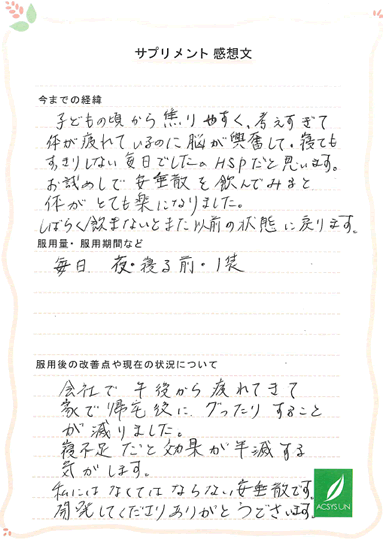 サプリメント 感想文
今までの経緯
子どもの頃から焦りやすく、考えすぎて
体が疲れているのに脳が興奮して、寝ても
すっきりしない毎日でした。HSPだと思います。
お試めしで安垂散を飲んでみると
体がとても楽になりました。
しばらく飲まないとまた以前の状態に戻ります。
服用量・服用期間など
毎日 夜・寝る前・1袋
服用後の改善点や現在の状況について
会社で午後から疲れてきて
家で帰宅後にグッたりすること
が減りました。
寝不足だと効果が半減する
気がします。
私にはなくてはならない安垂散です。
開発してくださりありがとうございます。
ACSYS UN